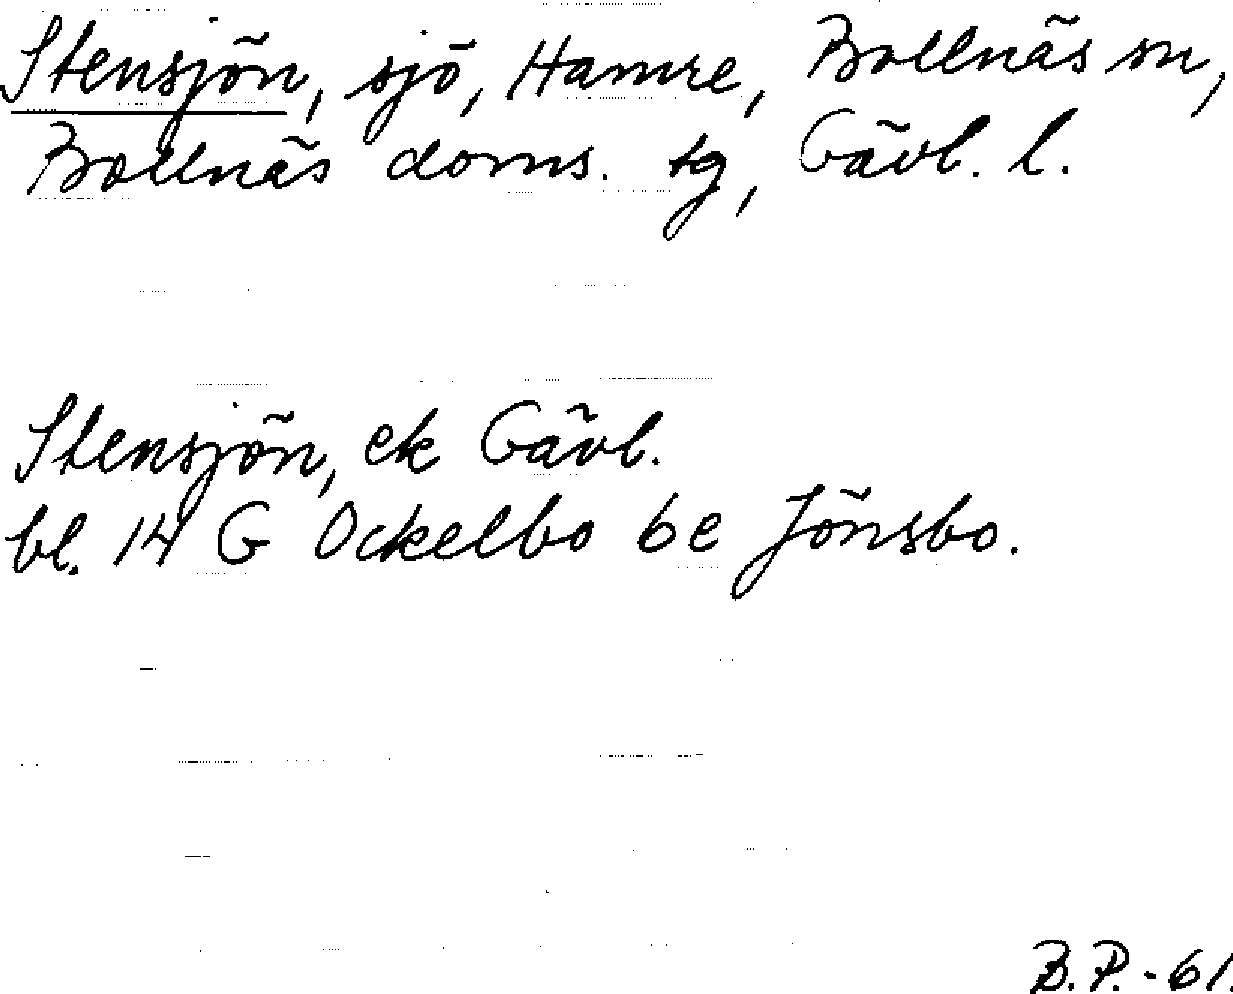 Stensjön, sjö, Hamre, Bollnäs sn,
Bollnäs doms. tg, Gävl. l.
Stensjön, ek Gävl.
bl. 14 G Ockelbo 6e Jönsbo.
B.P.-61.